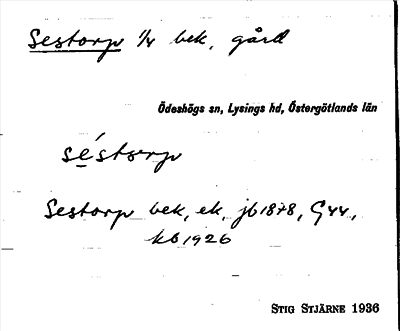 Sestorp 1/4 bek. gård
Ödeshögs sn, Lysings hd, Östergötlands län
séstorp
Sestorp bek, ek, jb 1878, G44,
kb 1926
STIG STJÄRNE 1936